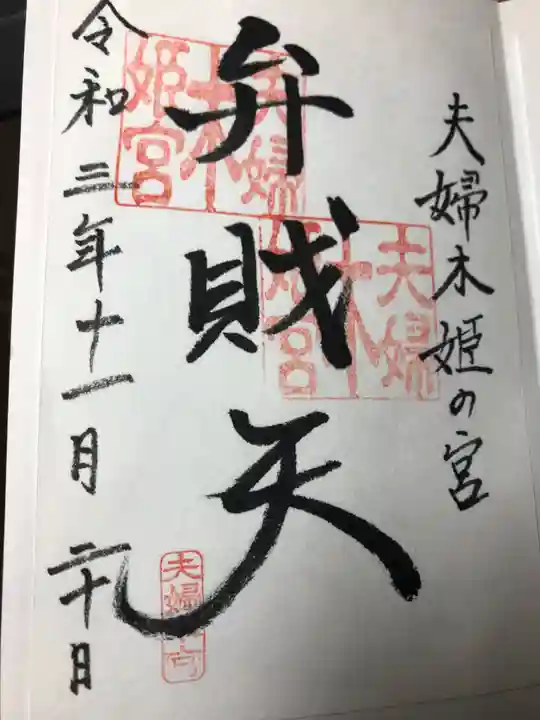 夫婦木姫の宮
弁財天
令和三年十一月二十日
夫婦木姫宮
夫婦木姫宮